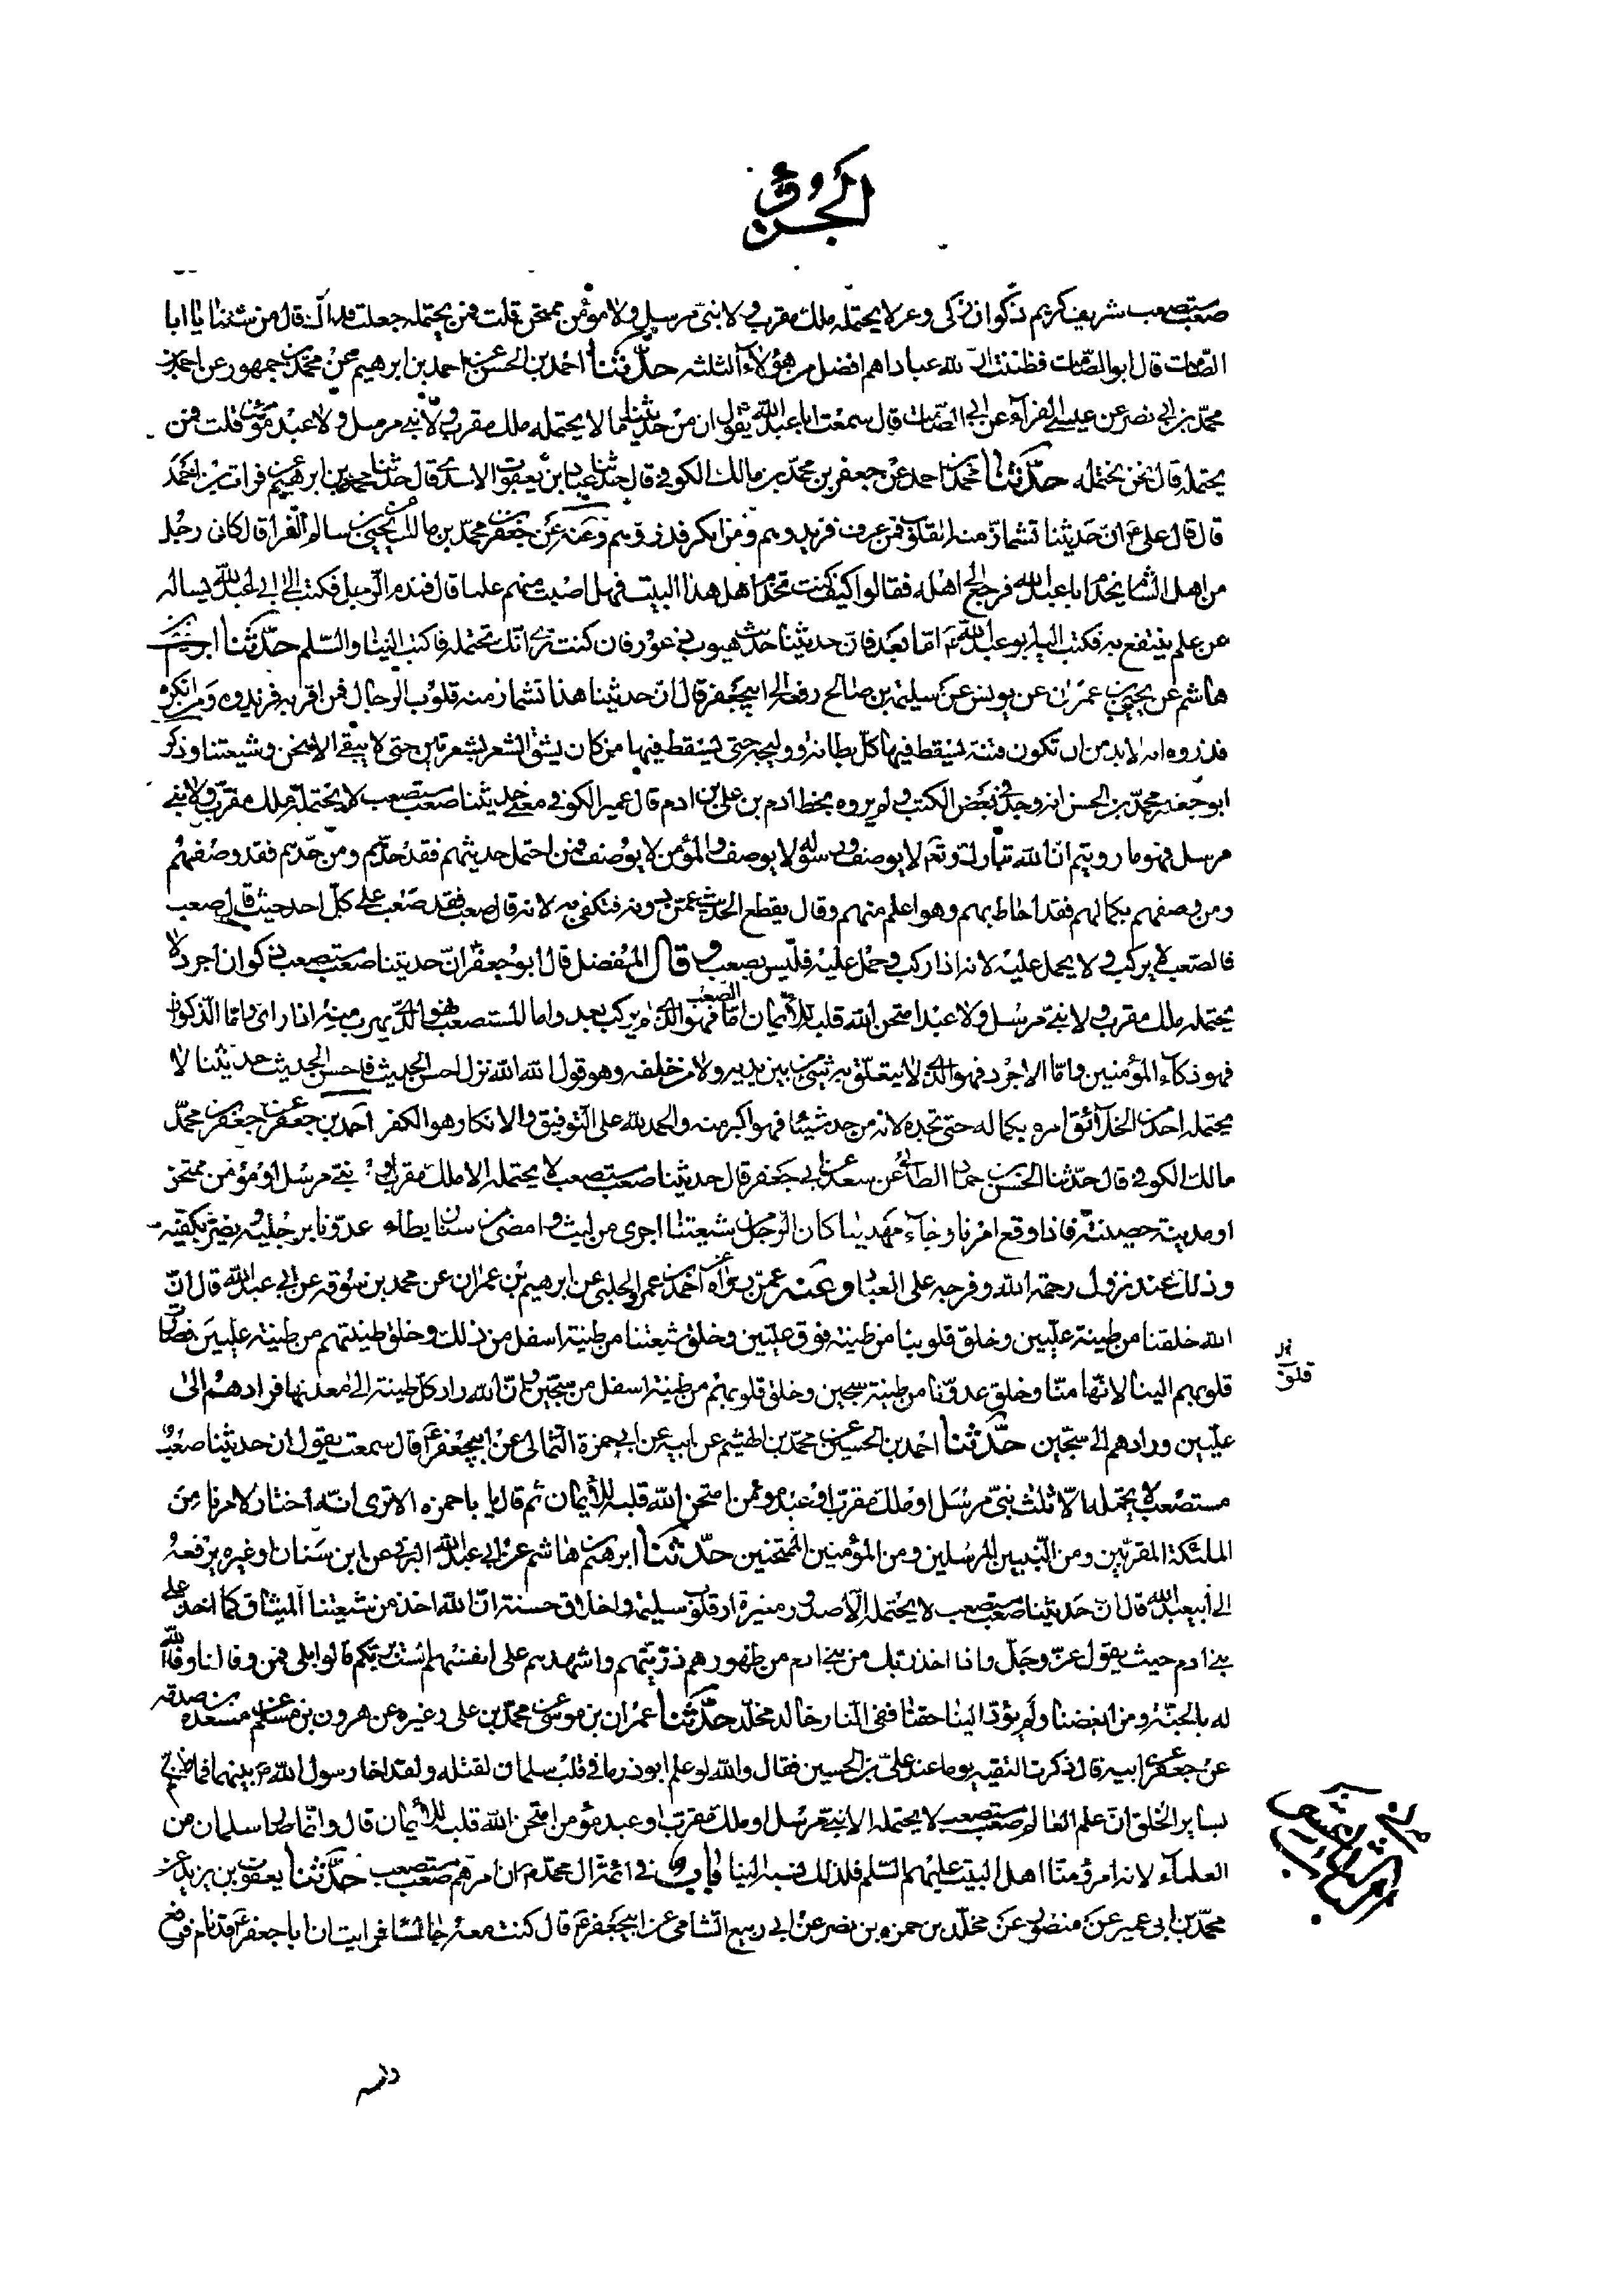 الجزو
صعب مستصعب شريف كريم ذكوان ذكى وعر لا يحتمله ملك مقرب و لا نبى مرسل و لا مؤمن ممتحن قلت فمن يحتمله جعلت فداك قال من شئنا يا ابا
الصامت قال ابو الصامت فظننت ان لله عبادا هم افضل من هؤلاء الثلثة حدثنا احمد بن الحسن عن احمد بن ابرهيم عن محمد بن جمهور عن احمد بن
محمد بن ابى نصر عن عيسى الفراء عن ابى الصامت قال سمعت ابا عبد الله يقول ان من حديثنا ما لا يحتمله ملك مقرب و لا نبى مرسل و لا عبد مؤمن قلت فمن
يحتمله قال نحن نحتمله حدثنا محمد بن احمد عن جعفر بن محمد بن مالك الكوفى قال حدثنا عباد بن يعقوب الاسدى قال حدثنا محمد بن ابرهيم عن فرات بن احمد
قال قال على ع ان حديثنا تشمأز منه القلوب فمن عرف فزيدوهم و من انكر فذروهم و عنه عن جعفر بن محمد بن مالك عن يحيى بن سالم الفرا قال كان رجل
من اهل الشام يخدم ابا عبد الله فرجع الى اهله فقالوا كيف كنت تخدم اهل هذا البيت فهل اصبت منهم علما قال فندم الرجل فكتب الى ابى عبد الله يساله
عن علم ينتفع به فكتب اليه ابو عبد الله ع اما بعد فان حديثنا حديث هيوب ذعور فان كنت ترى انك تحتمله فاكتب الينا و السلم حدثنا ابرهيم بن
هاشم عن يحيى بن عمران عن يونس عن سليمن بن صالح رفعه الى ابيجعفر قال ان حديثنا هذا تشمأز منه قلوب الرجال فمن اقر به فزيدوه و من انكره
فذروه انه لا بد من ان تكون فتنة يسقط فيها كل بطانة و وليجة حتى يسقط فيها من كان يشق الشعر بشعرتين حتى لا يبقى الا نحن و شيعتنا و ذكر
ابو جعفر محمد بن الحسن انه وجد فى بعض الكتب و لم يروه بخط ادم بن على بن ادم قال عمير الكوفى معنى حديثنا صعب مستصعب لا يحتمله ملك مقرب و لا نبى
مرسل فهو ما رويتم ان الله تبارك و تعم لا يوصف و رسوله لا يوصف و المؤمن لا يوصف فمن احتمل حديثهم فقد حدهم و من حدهم فقد وصفهم
و من وصفهم بكمالهم فقد احاط بهم و هو اعلم منهم و قال يقطع الحديث عمن دونه فنكتفى به لانه قال صعب فقد صعب على كل احد حيث قال صعب
فالصعب لا يركب و لا يحمل عليه لانه اذا ركب و حمل عليه فليس بصعب و قال المفضل قال ابو جعفر ان حديثنا صعب مستصعب ذكوان اجرد لا
يحتمله ملك مقرب و لا نبى مرسل و لا عبد امتحن الله قلبه للايمان اما الصعب فهو الذى لم يركب بعد و اما المستصعب فهو الذى يهرب منه اذا راى و اما الذكوان
فهو ذكاء المؤمنين و اما الاجرد فهو الذى لا يتعلق به شيئ من بين يديه و لا من خلفه و هو قول الله الله نزل احسن الحديث فاحسن الحديث حديثنا لا
يحتمله احد من الخلائق امره بكماله حتى تحده لانه من حد شيئا فهو اكبر منه و الحمد لله على التوفيق و الانكار هو الكفر احمد بن جعفر عن جعفر بن محمد
مالك الكوفى قال حدثنا الحسن بن حماد الطائى عن سعد عن ابى جعفر قال حديثنا صعب مستصعب لا يحتمله الا ملك مقرب او نبى مرسل او مؤمن ممتحن
او مدينة حصينة فاذا وقع امرنا و جاء مهدينا كان الرجل من شيعتنا اجرى من ليث و امضى من سنان يطاء عدونا برجليه و يضربه بكفيه
و ذلك عند نزول رحمة الله و فرجه على العباد و عنه عمن رواه عن احمد بن عمرو الحلبى عن ابرهيم بن عمران عن محمد بن سوقة عن ابى عبد الله قال ان
الله خلقنا من طينة عليين و خلق قلوبنا من طينة فوق عليين و خلق شيعتنا من طينة اسفل من ذلك و خلق طينتهم من طينة عليين فصارت
قلوبهم الينا لانها منا و خلق عدونا من طينة سجين و خلق قلوبهم من طينة اسفل من سجين و ان الله راد كل طينة الى معدنها فرادهم الى
عليين و رادهم الى سجين حدثنا احمد بن الحسين عن محمد بن الهيثم عن ابيه عن ابى حمزة الثمالى عن ابيجعفر ع قال سمعت يقول ان حديثنا صعب
مستصعب لا يحتمله الا ثلث نبى مرسل او ملك مقرب او عبد مؤمن امتحن الله قلبه للايمان ثم قال يا با حمزه الا ترى انه اختار لامرنا من
الملئكة المقربين و من النبيين المرسلين و من المؤمنين الممتحنين حدثنا ابرهيم بن هاشم عن ابى عبد الله البرقى عن ابن سنان او غيره يرفعه
الى ابيعبد الله قال ان حديثنا صعب مستصعب لا يحتمله الا صدور منيرة او قلوب سليمة و اخلاق حسنة ان الله اخذ من شيعتنا الميثاق كما اخذ على
بنى ادم حيث يقول عز و جل و اذا اخذ ربك من بنى ادم من ظهورهم ذريتهم و اشهدهم على انفسهم الست بربكم قالوا بلى فمن وفا لنا وفا الله
له بالجنة و من ابغضنا و لم يؤد الينا حقنا ففى النار خالد مخلد حدثنا عمران بن موسى عن محمد بن على و غيره عن هرون بن مسلم عن مسعده بن صدقه
عن جعفر عن ابيه قال ذكرت التقيه يوما عند على بن الحسين فقال و الله لو علم ابوذر ما فى قلب سلمان لقتله و لقد اخا رسول الله ص بينهما فما ظنكم
بساير الخلق ان علم العالم صعب مستصعب لا يحتمله الا نبى مرسل او ملك مقرب او عبد مؤمن امتحن الله قلبه للايمان قال و انما صار سلمان من
العلماء لانه امرؤ منا اهل البيت عليهم السلم فلذلك نسبه الينا باب فى ائمة ال محمد ص ان امرهم صعب مستصعب حدثنا يعقوب بن يزيد عن
محمد بن ابى عمير عن منصور عن مخلد بن حمزه بن نصر عن ابى ربيع الشامى عن ابيجعفر ع قال كنت معه جالسا فرايت ان ابا جعفر ع قد نام فرفع
قلوب